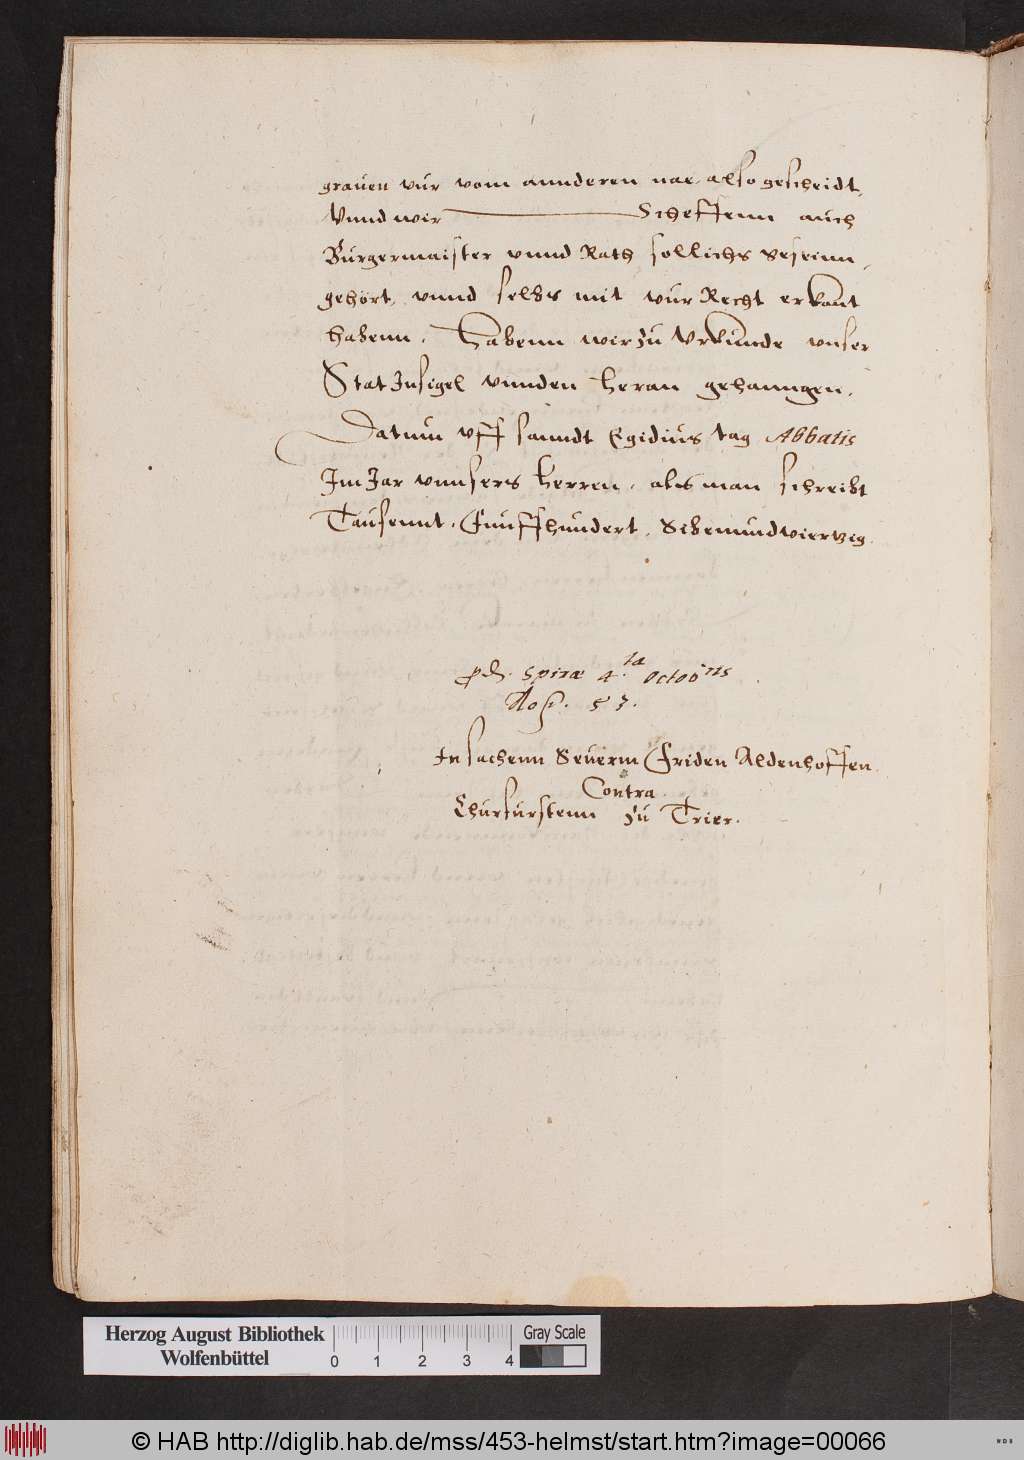 grauen vur vom annderen nae, also gescheidt,
Vnnd wir Scheffenn auch
Burgermaister vnnd Rath sollichs geseinn,
gehört, vnnd selbs mit vur Recht erkant
habenn, Habenn wir zu Vrkunde vnser
Stat Insigel vnnden heran gehanngen,
Datum vff sanndt Egidius tag Abbatis
Im Jar vnnsers Herren, als man schreibt
Tausennt, Funffhundert, Sibenundviertzig.
Spiræ 4.ta Octobris
57.
In sachenn Seuerin Friden Aldenhoffen
Contra
Churfurstenn zu Trier.
Herzog August Bibliothek
Wolfenbüttel
0 1 2 3 4
Gray Scale
© HAB http://diglib.hab.de/mss/453-helmst/start.htm?image=00066